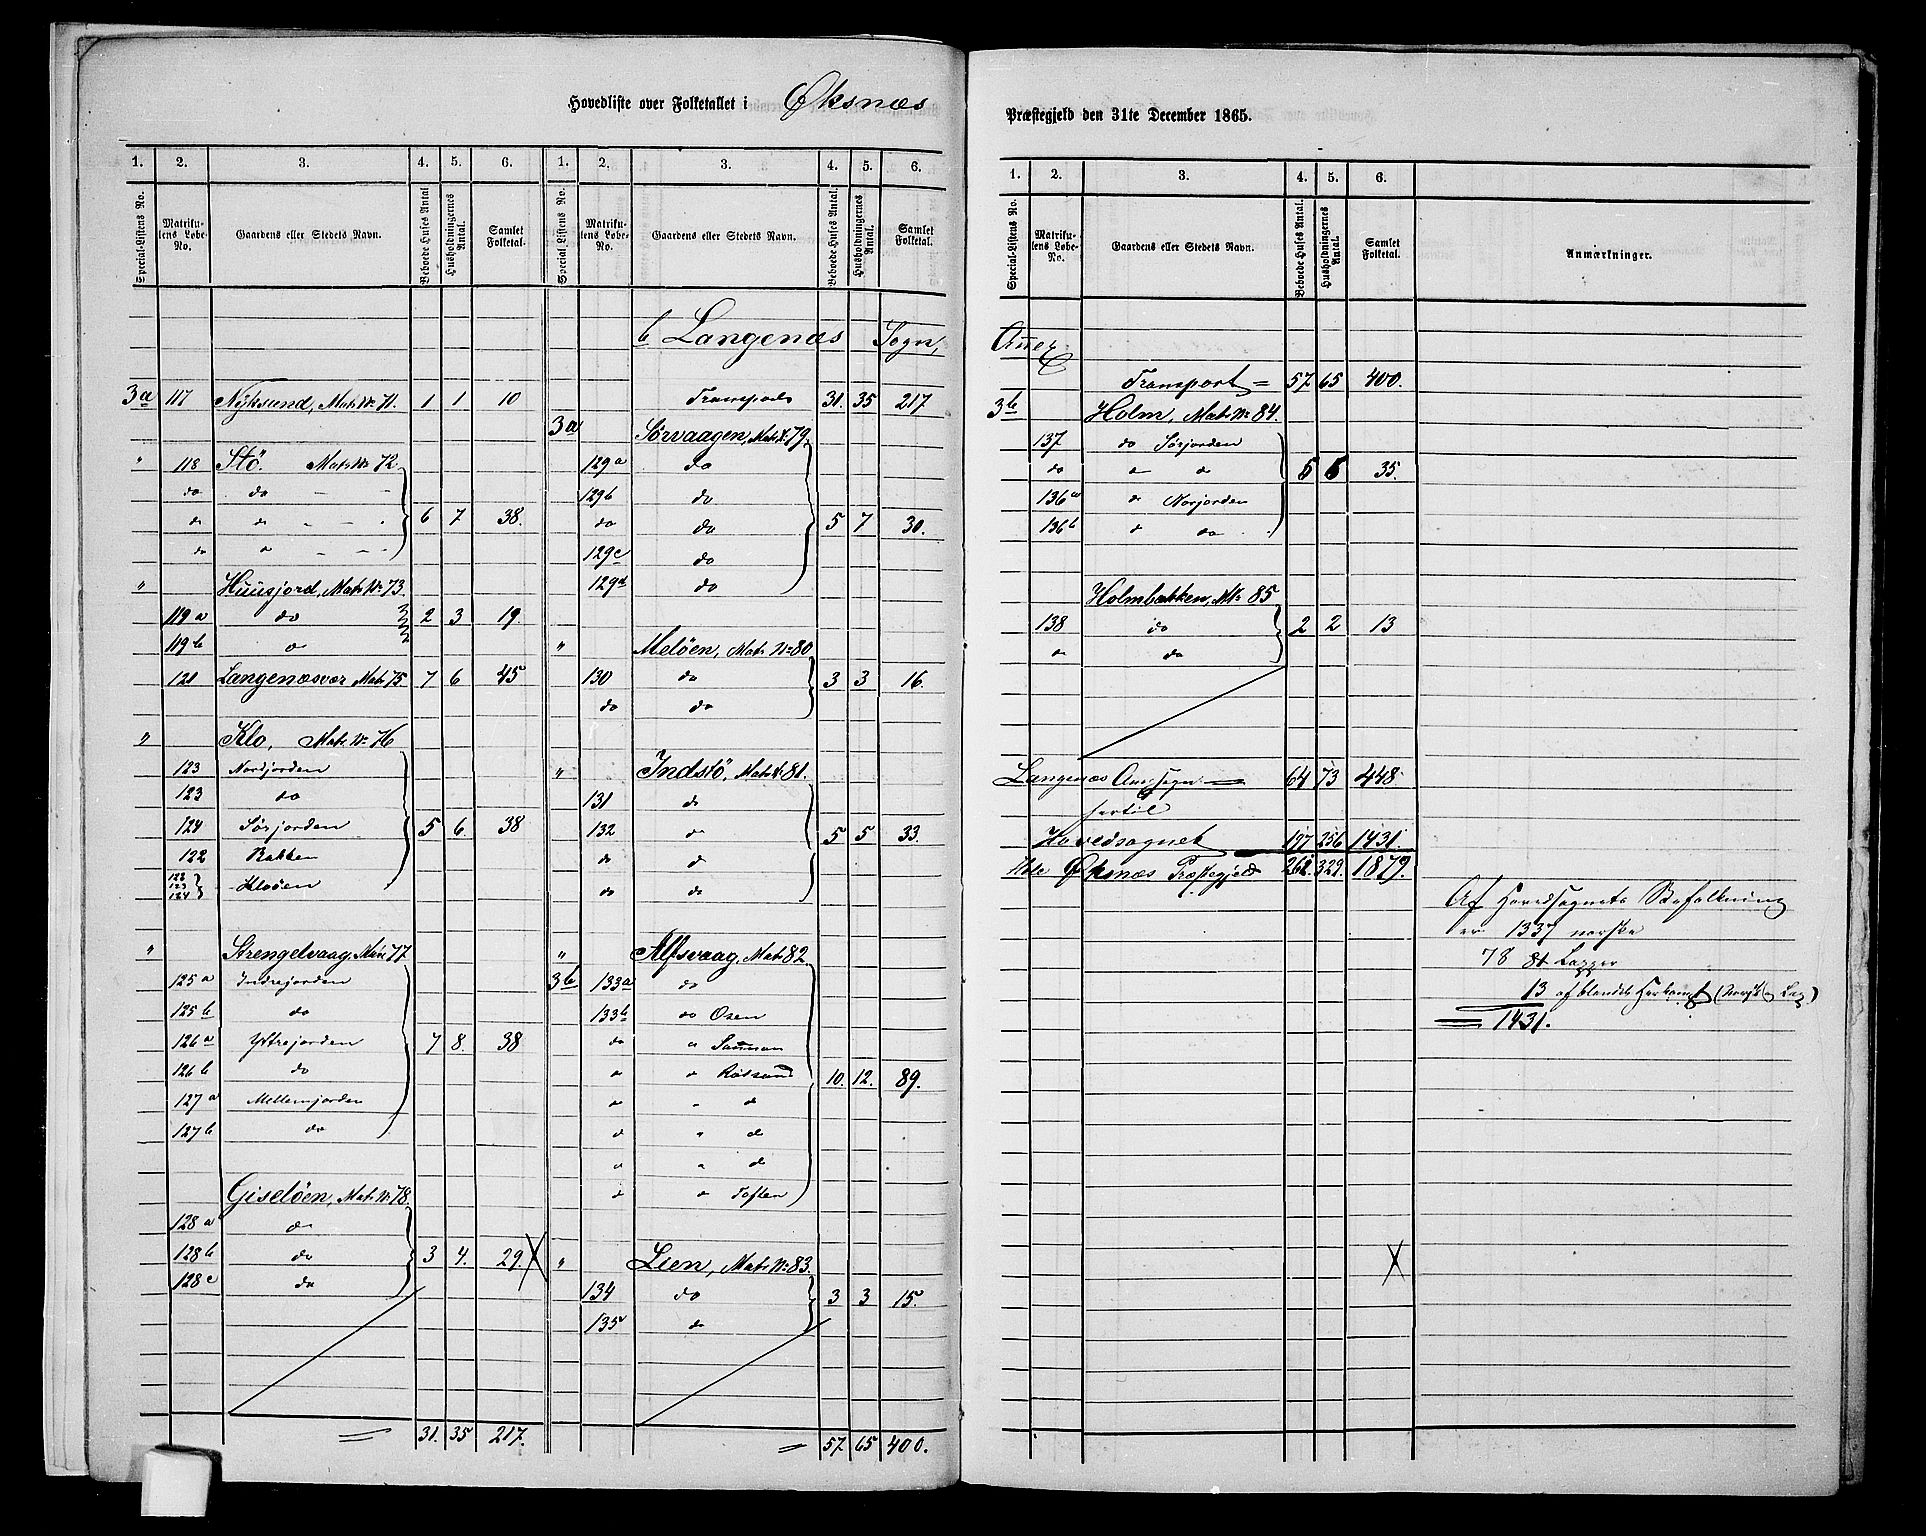 Hovedliste over Folketallet i Øksnæs
Præstegjeld den 31te December 1865.
1. 2. 3. 4. 5. 6. 1. 2. 3. 4. 5. 6.
Special-Listens No. Matrikulens Løbe-No. Gaardens eller Stedets Navn. Beboede Huses Antal Husholdningernes Antal. Samlet Folketal. Special-Listens No. Matrikulens Løbe-No. Gaardens eller Stedets Navn. Beboede Huses Antal. Husholdningernes Antal. Samlet Folketal.
3a 117 Nyksund, Mat. No 71. 1 1 10
" 118 Stö. Mat. No 72
do do - -
do do - - 6 7 38.
do do - - -
" Huusjord, Mat. No 73
119a do 2 3 19.
119b do
121 Langenæsvær Mat. 75 7 6 45
" Klo, Mat. No 76
123 Nordjorden
123 do
124 Sörjorden 5 6. 38
122 Bakken
122 123 124 Kloöen
" Strengelvaag, Mat. 77
125a Indrejorden
125b do
126a Yttrejorden 7 8. 38
126b do
127a Mellemjorden
127b do
Giselöen, Mat. No 78.
128a do
128b do 3 4. 29. X
128c do
31. 35 217.
b Langenæs Sogn,
Transport 31. 35 217
3a Sörvaagen, Mat. No 79.
129a do
129b do
do do 5 7 30.
129c do
129d do
" Melöen, Mat. No 80
130 do 3 3 16.
do do
" Indstö, Mat. No 81.
131 do
132 do 5 5 33.
do do
do do
" Alfsvaag, Mat. 82.
3b 133a do
133b do Osen
do " 
" " 10. 12. 89.
" " d
d " d
" " d
" " Toften
" Lien, Mat. No 83.
134 do 3 3 15.
135 do
57. 65 400.
1. 2. 3. 4. 5. 6.
Special-Listens No. Matrikulens Løbe-No. Gaardens eller Stedets Navn. Beboede Huses Antal. Husholdningernes Antal. Samlet Folketal. Anmærkninger.
Annex
Transport = 57 65 400.
3b Holm, Mat. No 84.
137 do Sörjorden
do " " 5 6 35.
136a do Norjorden
136b " do
Holmbakken, M No 85
138 do 2 2 13
" do
Langenæs Annexsogn 64 73 448.
hertil
Hovedsognet 197 256 1431.
Hele Øksnæs Præstegjeld 261 329. 1879.
Af Hovedsognets Befolkning
er 1337 norske
78 81 Lapper
13 af blandet Herkomst (Norsk og Lap)
1431.
X